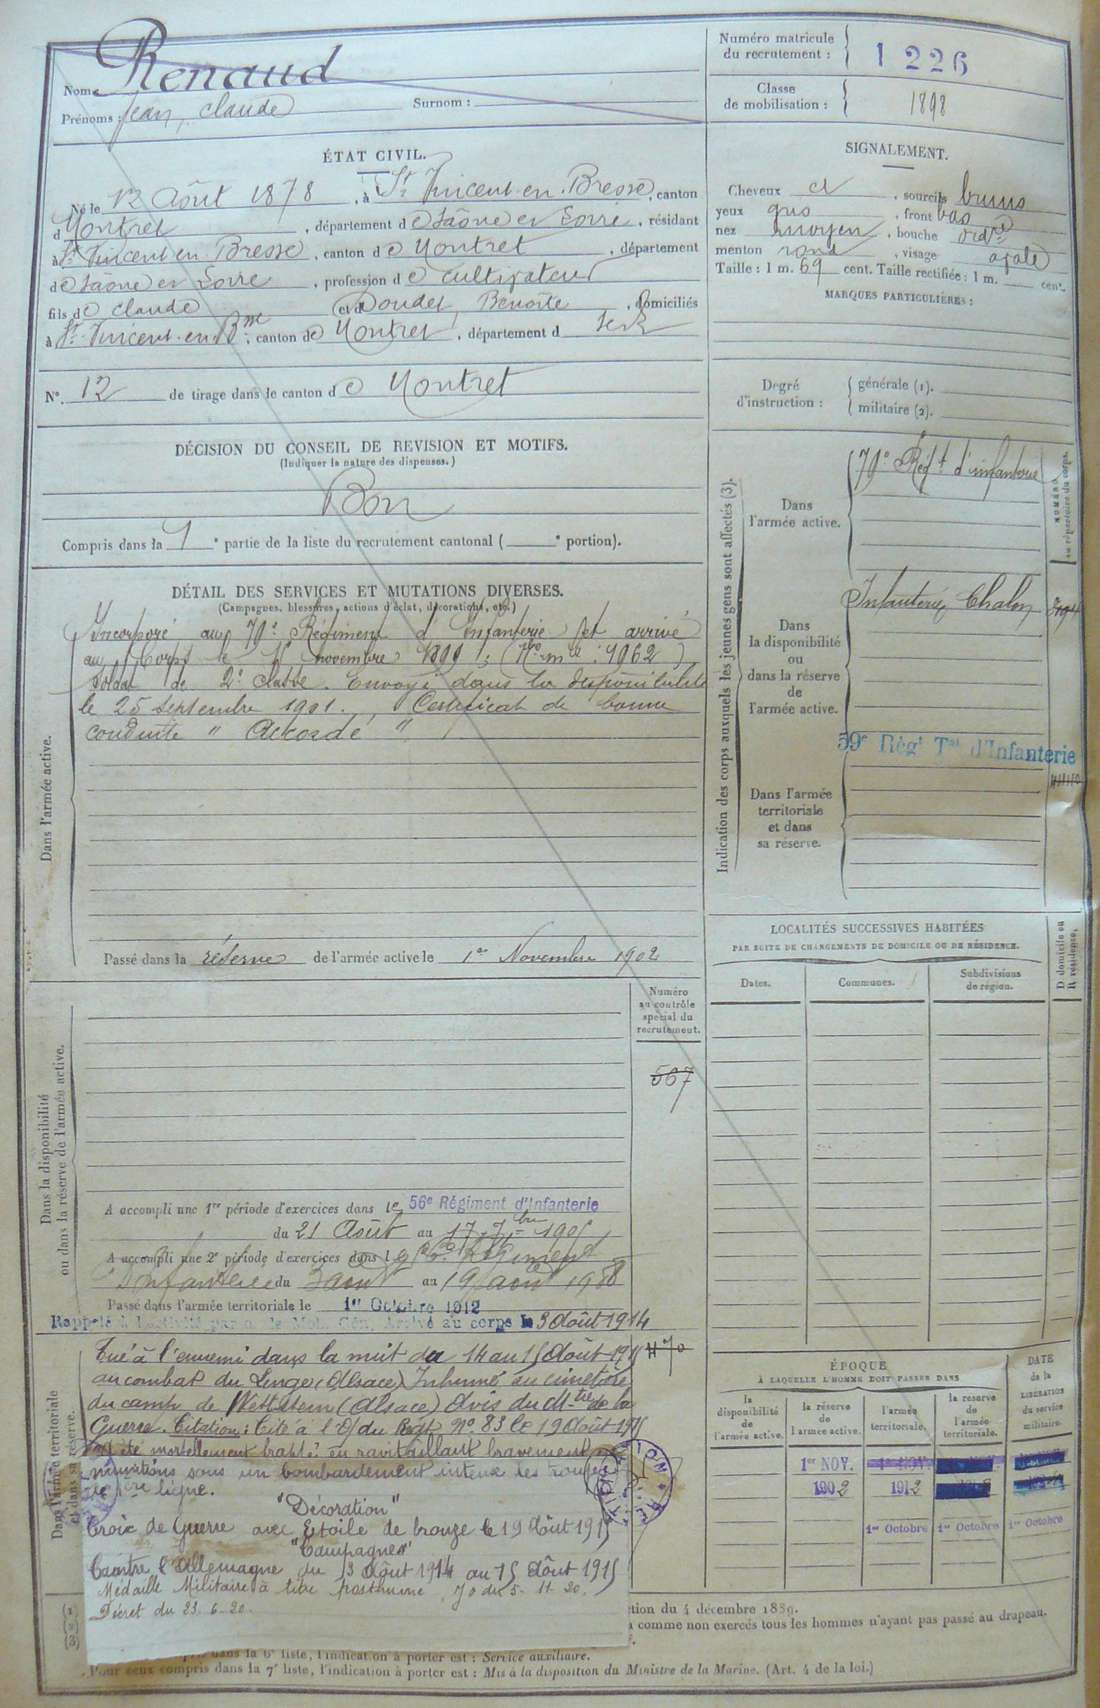 Nom : Renaud
Prénoms : Jean, Claude Surnom :
Numéro matricule du recrutement : 1226
Classe de mobilisation : 1898
ÉTAT CIVIL.
Né le 12 Août 1878, à St Vincent en Bresse, canton
d Montret, département de Saône et Loire, résidant
à St Vincent en Bresse, canton de Montret, département
de Saône et Loire, profession de cultivateur
fils de Claude et d Doudet, Benoite, domiciliés
à St Vincent en Bsse, canton de Montret, département d
N° 12 de tirage dans le canton de Montret
SIGNALEMENT.
Cheveux ct, sourcils bruns
yeux gris, front bas
nez moyen, bouche ordre
menton rond, visage ovale
Taille : 1 m. 69 cent. Taille rectifiée : 1 m. cent.
MARQUES PARTICULIÈRES :
Degré d'instruction : générale (1).
militaire (2).
DÉCISION DU CONSEIL DE REVISION ET MOTIFS.
(Indiquer la nature des dispenses.)
Bon
Compris dans la 1e partie de la liste du recrutement cantonal ( e portion).
DÉTAIL DES SERVICES ET MUTATIONS DIVERSES.
(Campagnes, blessures, actions d'éclat, décorations, etc.)
Dans l'armée active.
Incorporé au Régiment d'Infanterie et arrivé
au Corps le novembre 1899 : (No mle :
Soldat de 2e classe. Envoyé dans la disponibilité
le 25 septembre 1901. Certificat de bonne
conduite " Accordé "
Passé dans la réserve de l'armée active le 1er Novembre 1902
Indication des corps auxquels les jeunes gens sont affectés (3).
NUMÉRO au répertoire du corps.
Dans l'armée active.
Régt d'infanterie
Dans la disponibilité ou dans la réserve de l'armée active.
Infanterie Chalon
59e Régt Tal d'Infanterie
Dans l'armée territoriale et dans sa réserve.
LOCALITÉS SUCCESSIVES HABITÉES
PAR SUITE DE CHANGEMENTS DE DOMICILE OU DE RÉSIDENCE.
Dates. Communes. Subdivisions de région. D domicile ou R résidence.
Dans la disponibilité ou dans la réserve de l'armée active.
Numéro au contrôle spécial du recrutement.
567
A accompli une 1re période d'exercices dans le 56e Régiment d'Infanterie
du 21 Août au 17 7bre 1905
A accompli une 2e période d'exercices dans le Régiment
d'Infanterie du 3 août au 19 août 1908
Passé dans l'armée territoriale le 1er Octobre 1912
Rappelé à l'activité Mob. Gén. Arrivé au corps le 3 Août 1914
Dans l'armée territoriale et dans sa réserve.
Tué à l'ennemi dans la nuit du 14 au 15 Août 1915
au combat du Linge (Alsace) Inhumé au cimetière
du camp de Wettstein (Alsace) Avis du Mtre de la
Guerre. Citation : Cité à l'O/ du Régt No 83 le 19 Août 1915
a été mortellement frappé en ravitaillant bravement en
munitions sous un bombardement intense les troupes
de 1ère ligne.
"Décoration"
Croix de Guerre avec Etoile de bronze le 19 Août 1915
"Campagnes"
Contre l'Allemagne du 3 Août 1914 au 15 Août 1915
Médaille Militaire à titre posthume. J O du 5-11-20.
Décret du 23-6-20.
ÉPOQUE
À LAQUELLE L'HOMME DOIT PASSER DANS
la disponibilité de l'armée active. la réserve de l'armée active. l'armée territoriale. la réserve de l'armée territoriale. DATE de la LIBÉRATION du service militaire.
1er NOV. 1er NOV.
1902 1912
1er Octobre 1er Octobre 1er Octobre
ction du 4 décembre 1889.
comme non exercés tous les hommes n'ayant pas passé au drapeau.
dans la 6e liste, l'indication à porter est : Service auxiliaire.
Pour ceux compris dans la 7e liste, l'indication à porter est : Mis à la disposition du Ministre de la Marine. (Art. 4 de la loi.)